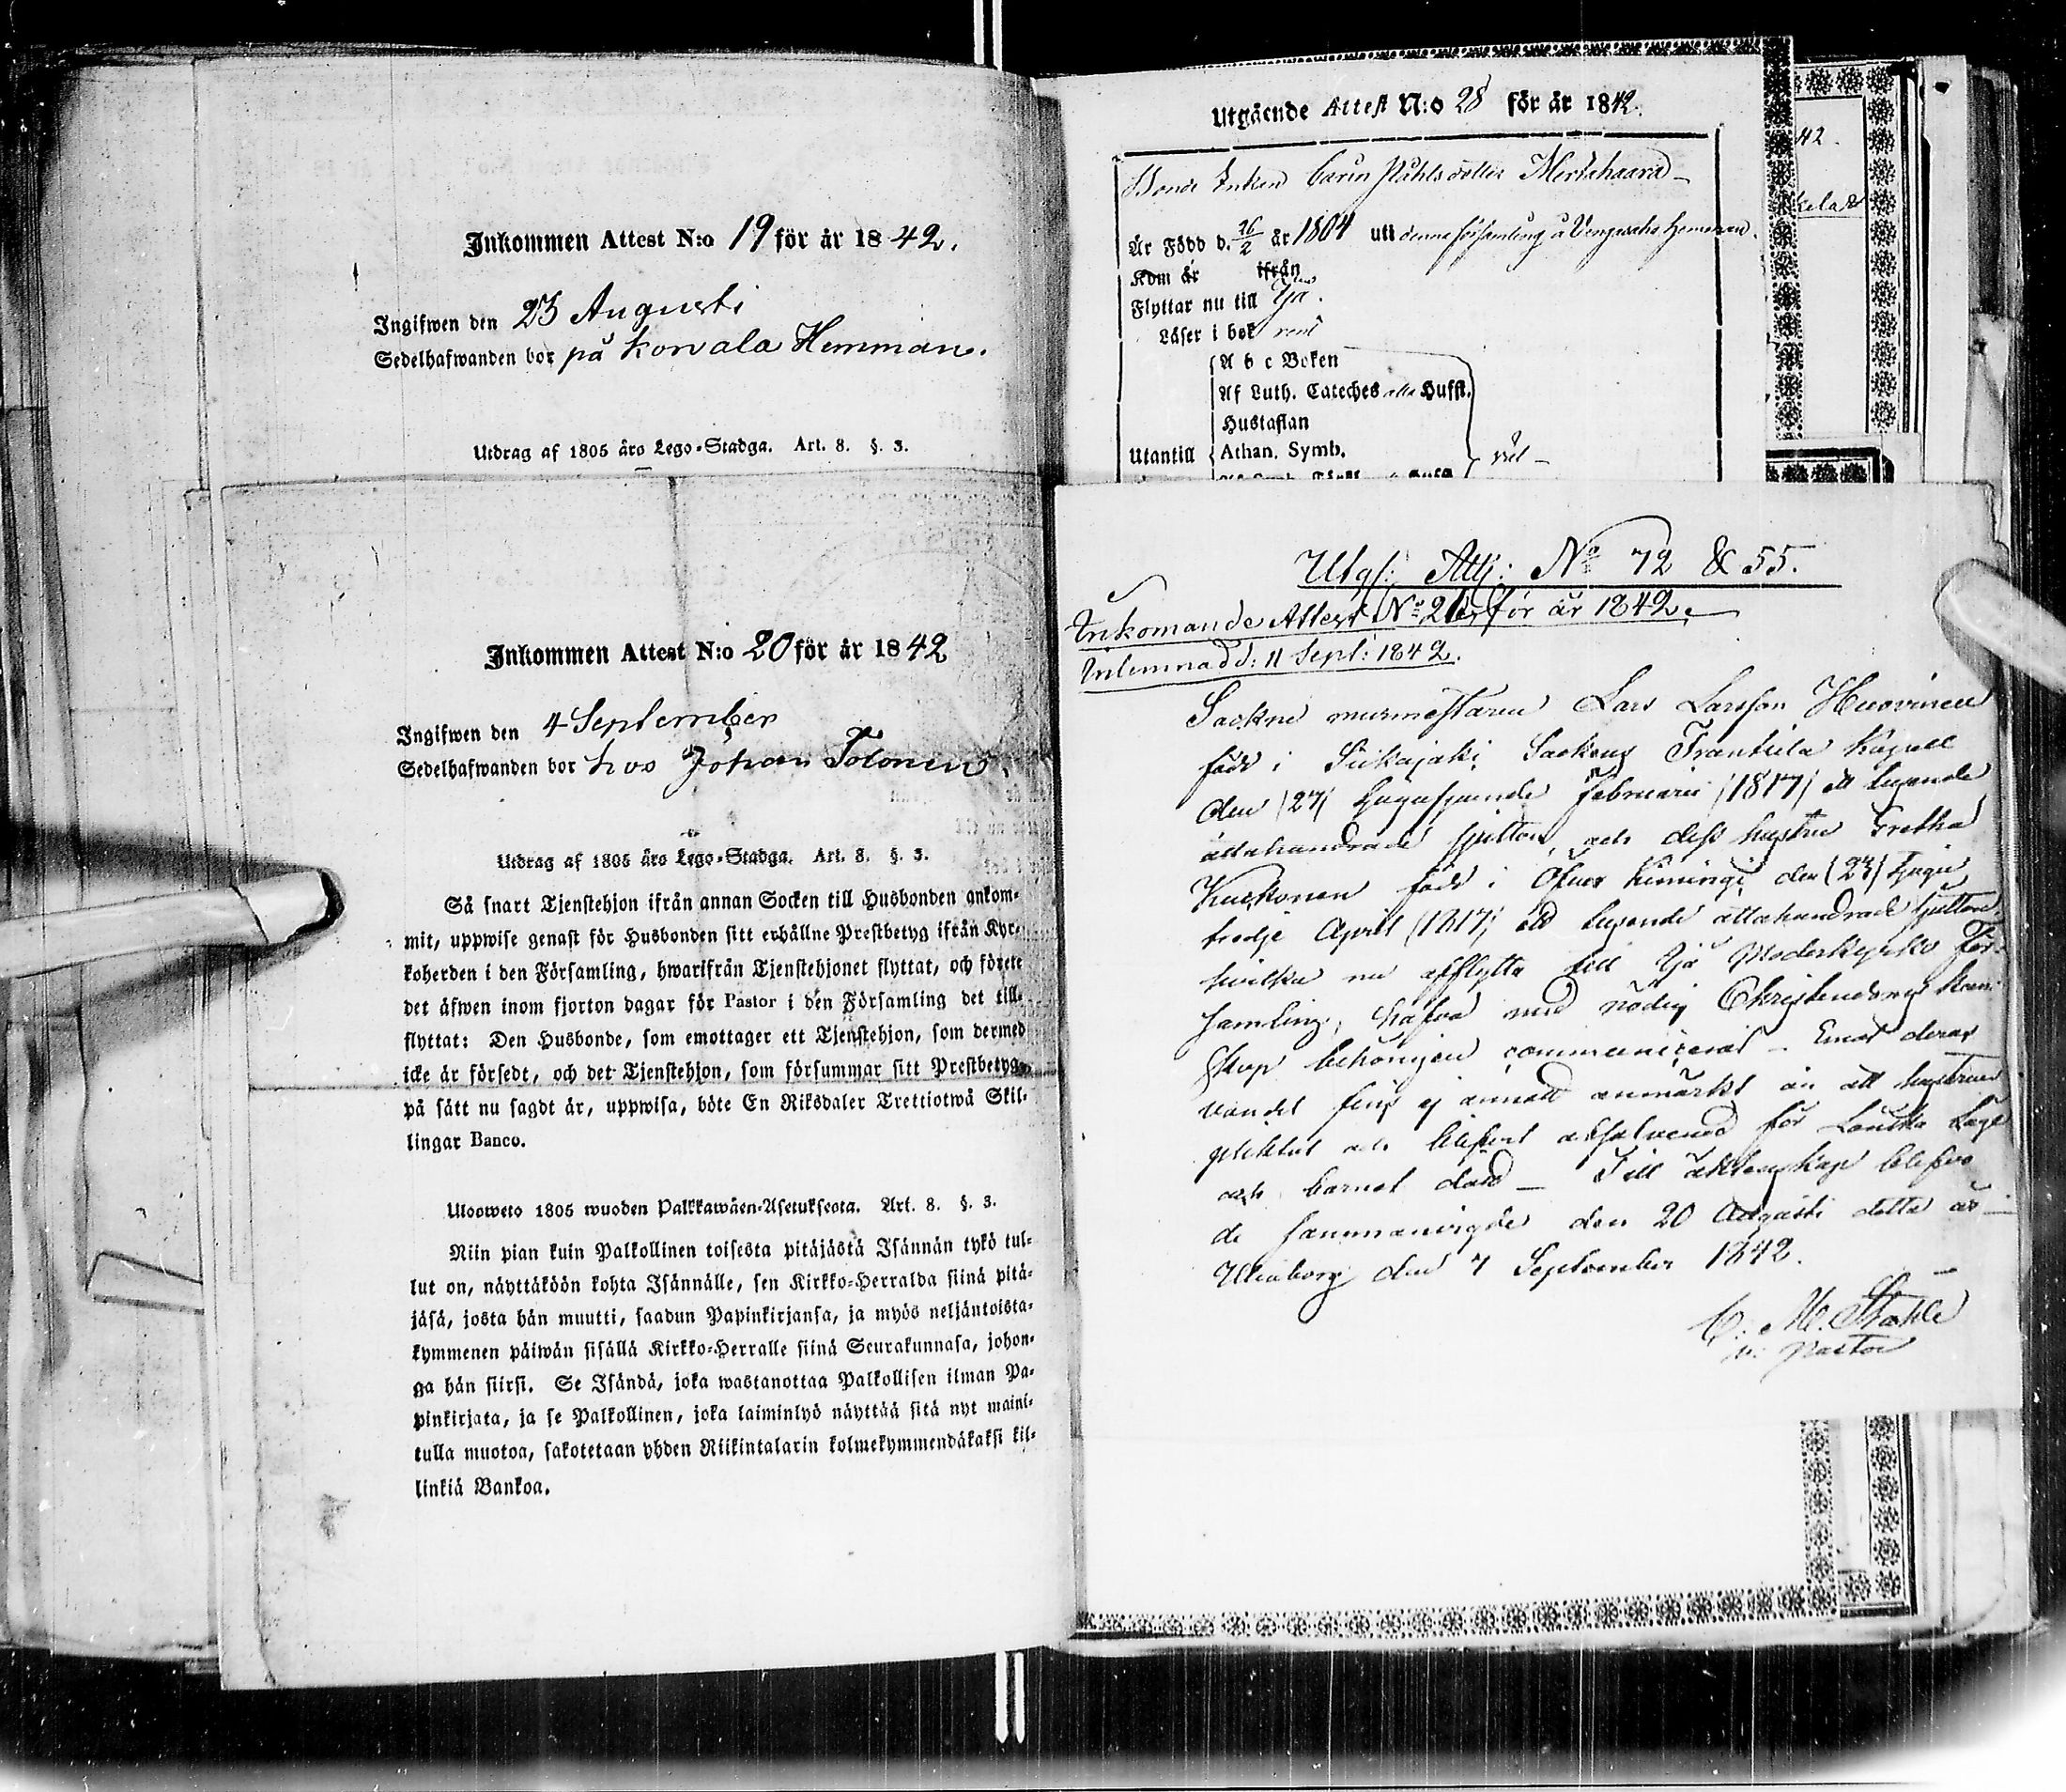 Inkommen Attest N:o 19 för år 1842.
Ingifwen den 23 Augusti
Sedelhafwanden bor på Korvala Hemman.
Utdrag af 1805 års Lego-Stadga. Art. 8. §. 3.
Inkommen Attest N:o 20 för år 1842
Ingifwen den 4 September
Sedelhafwanden bor hos Johan Tolonen.
Utdrag af 1805 års Lego-Stadga. Art. 8. §. 3.
Så snart Tjenstehjon ifrån annan Socken till Husbonden ankom-
mit, uppwise genast för Husbonden sitt erhållne Prestbetyg ifrån Kyr-
koherden i den Församling, hwarifrån Tjenstehjonet flyttat, och förete
det äfwen inom fjorton dagar för Pastor i den Församling det till-
flyttat: Den Husbonde, som emottager ett Tjenstehjon, som dermed
icke är försedt, och det Tjenstehjon, som försummar sitt Prestbetyg,
på sätt nu sagdt är, uppwisa, böte En Riksdaler Trettiotwå Skil-
lingar Banco.
Ulosweto 1805 wuoden Palkkawäen-Asetuksesta. Art. 8. §. 3.
Niin pian kuin Palkollinen toisesta pitäjästä Isännän tykö tul-
lut on, näyttäköön kohta Isännälle, sen Kirkko-Herralda siinä pitä-
jäsä, josta hän muutti, saadun Papinkirjansa, ja myös neljäntoista-
kymmenen päiwän sisällä Kirkko-Herralle siinä Seurakunnasa, johon-
ga hän siirsi. Se Isändä, joka wastanottaa Palkollisen ilman Pa-
pinkirjata, ja se Palkollinen, joka laiminlyö näyttää sitä nyt maini-
tulla muotoa, sakotetaan yhden Riikintalarin kolmekymmendäkaksi kil-
linkiä Bankoa.
Utgående Attest N:o 28 för år 1842.
Bonde Enkan Carin Påhlsdotter Mertahaara
Är Född d. 26/2 år 1804 uti denna församling å Vengasaho Hemman.
Kom år ifrån
Flyttar nu till Ijo.
Läser i bok rent
A b c Boken
Af Luth. Cateches alla Hufst.
Hustaflan
Utantill Athan. Symb. väl
42.
kela
Utgf: Att: No 72 & 55.
Inkomande Attest No 21 för år 1842.
Inlemnad d: 11 Sept: 1842.
Sockne murmästaren Lars Larsson Huovinen
född i Siikajoki Sockens Frantsila Kapell
den (27) tjugusjunde Februarii (1817) ett tusende
åttahundrade sjutton, och dess hustru Gretha
Kuckonen född i Öfver Kiminge den (23) tjugu
tredje April (1817) ett tusende åttahundrade sjutton,
hvilka nu afflytta till Ijo Moderkyrko För-
samling, hafva med nödig Christendoms kun-
skap behörigen communicerat. Emot deras
vandel fins ej annat anmärkt än att hustrun
pliktat och blifvit absolverad för Lönska läge
och barnet död – Till äktenskap blefvo
de sammanvigde den 20 Augusti detta år
Uleåborg den 7 September 1842.
C. M. Stahle
v: Pastor